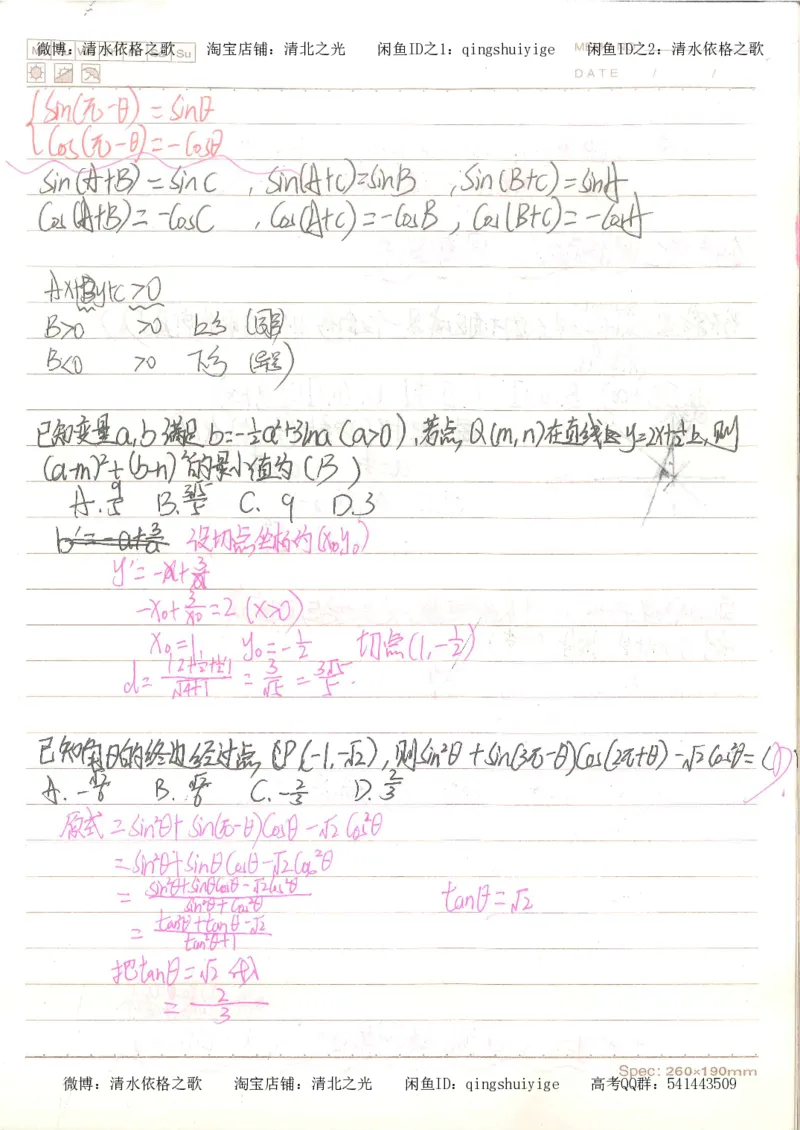 微博：清水依格之歌 淘宝店铺：清北之光 闲鱼ID之1：qingshuiyige 闲鱼ID之2：清水依格之歌
Su
DATE / /
sin(π-θ)=sinθ
cos(π-θ)=-cosθ
sin(A+B)=sinC ，sin(A+C)=sinB ，sin(B+C)=sinA
cos(A+B)=-cosC ，cos(A+C)=-cosB ，cos(B+C)=-cosA
Ax+By+c>0
B>0 >0 上方 (同)
B<0 >0 下方 (异)
已知变量a,b满足b=-½a²+3lna（a>0），若点Q(m,n)在直线y=2x+½上，则
(a-m)²+(b-n)²的最小值为（B）
A. 9/5 B. 3√5/5 C. 9 D.3
b'=-a+3/a 设切点坐标为(x₀,y₀)
y'=-x+3/x
-x₀+3/x₀=2 (x>0)
x₀=1, y₀=-½ 切点(1,-½)
d=|2+½+½|/√4+1 = 3/√5 = 3√5/5.
已知角θ的终边经过点P(-1,-√2)，则sin²θ+sin(3π-θ)cos(2π+θ)-√2cos²θ=（D）
A. -√2/6 B. √2/6 C. -2/3 D. 2/3
原式=sin²θ+sin(π-θ)cosθ-√2cos²θ
=sin²θ+sinθcosθ-√2cos²θ
=sin²θ+sinθcosθ-√2cos²θ/sin²θ+cos²θ tanθ=√2
=tan²θ+tanθ-√2/tan²θ+1
把tanθ=√2代入
=2/3
Spec: 260×190mm
微博：清水依格之歌 淘宝店铺：清北之光 闲鱼ID：qingshuiyige 高考QQ群：541443509